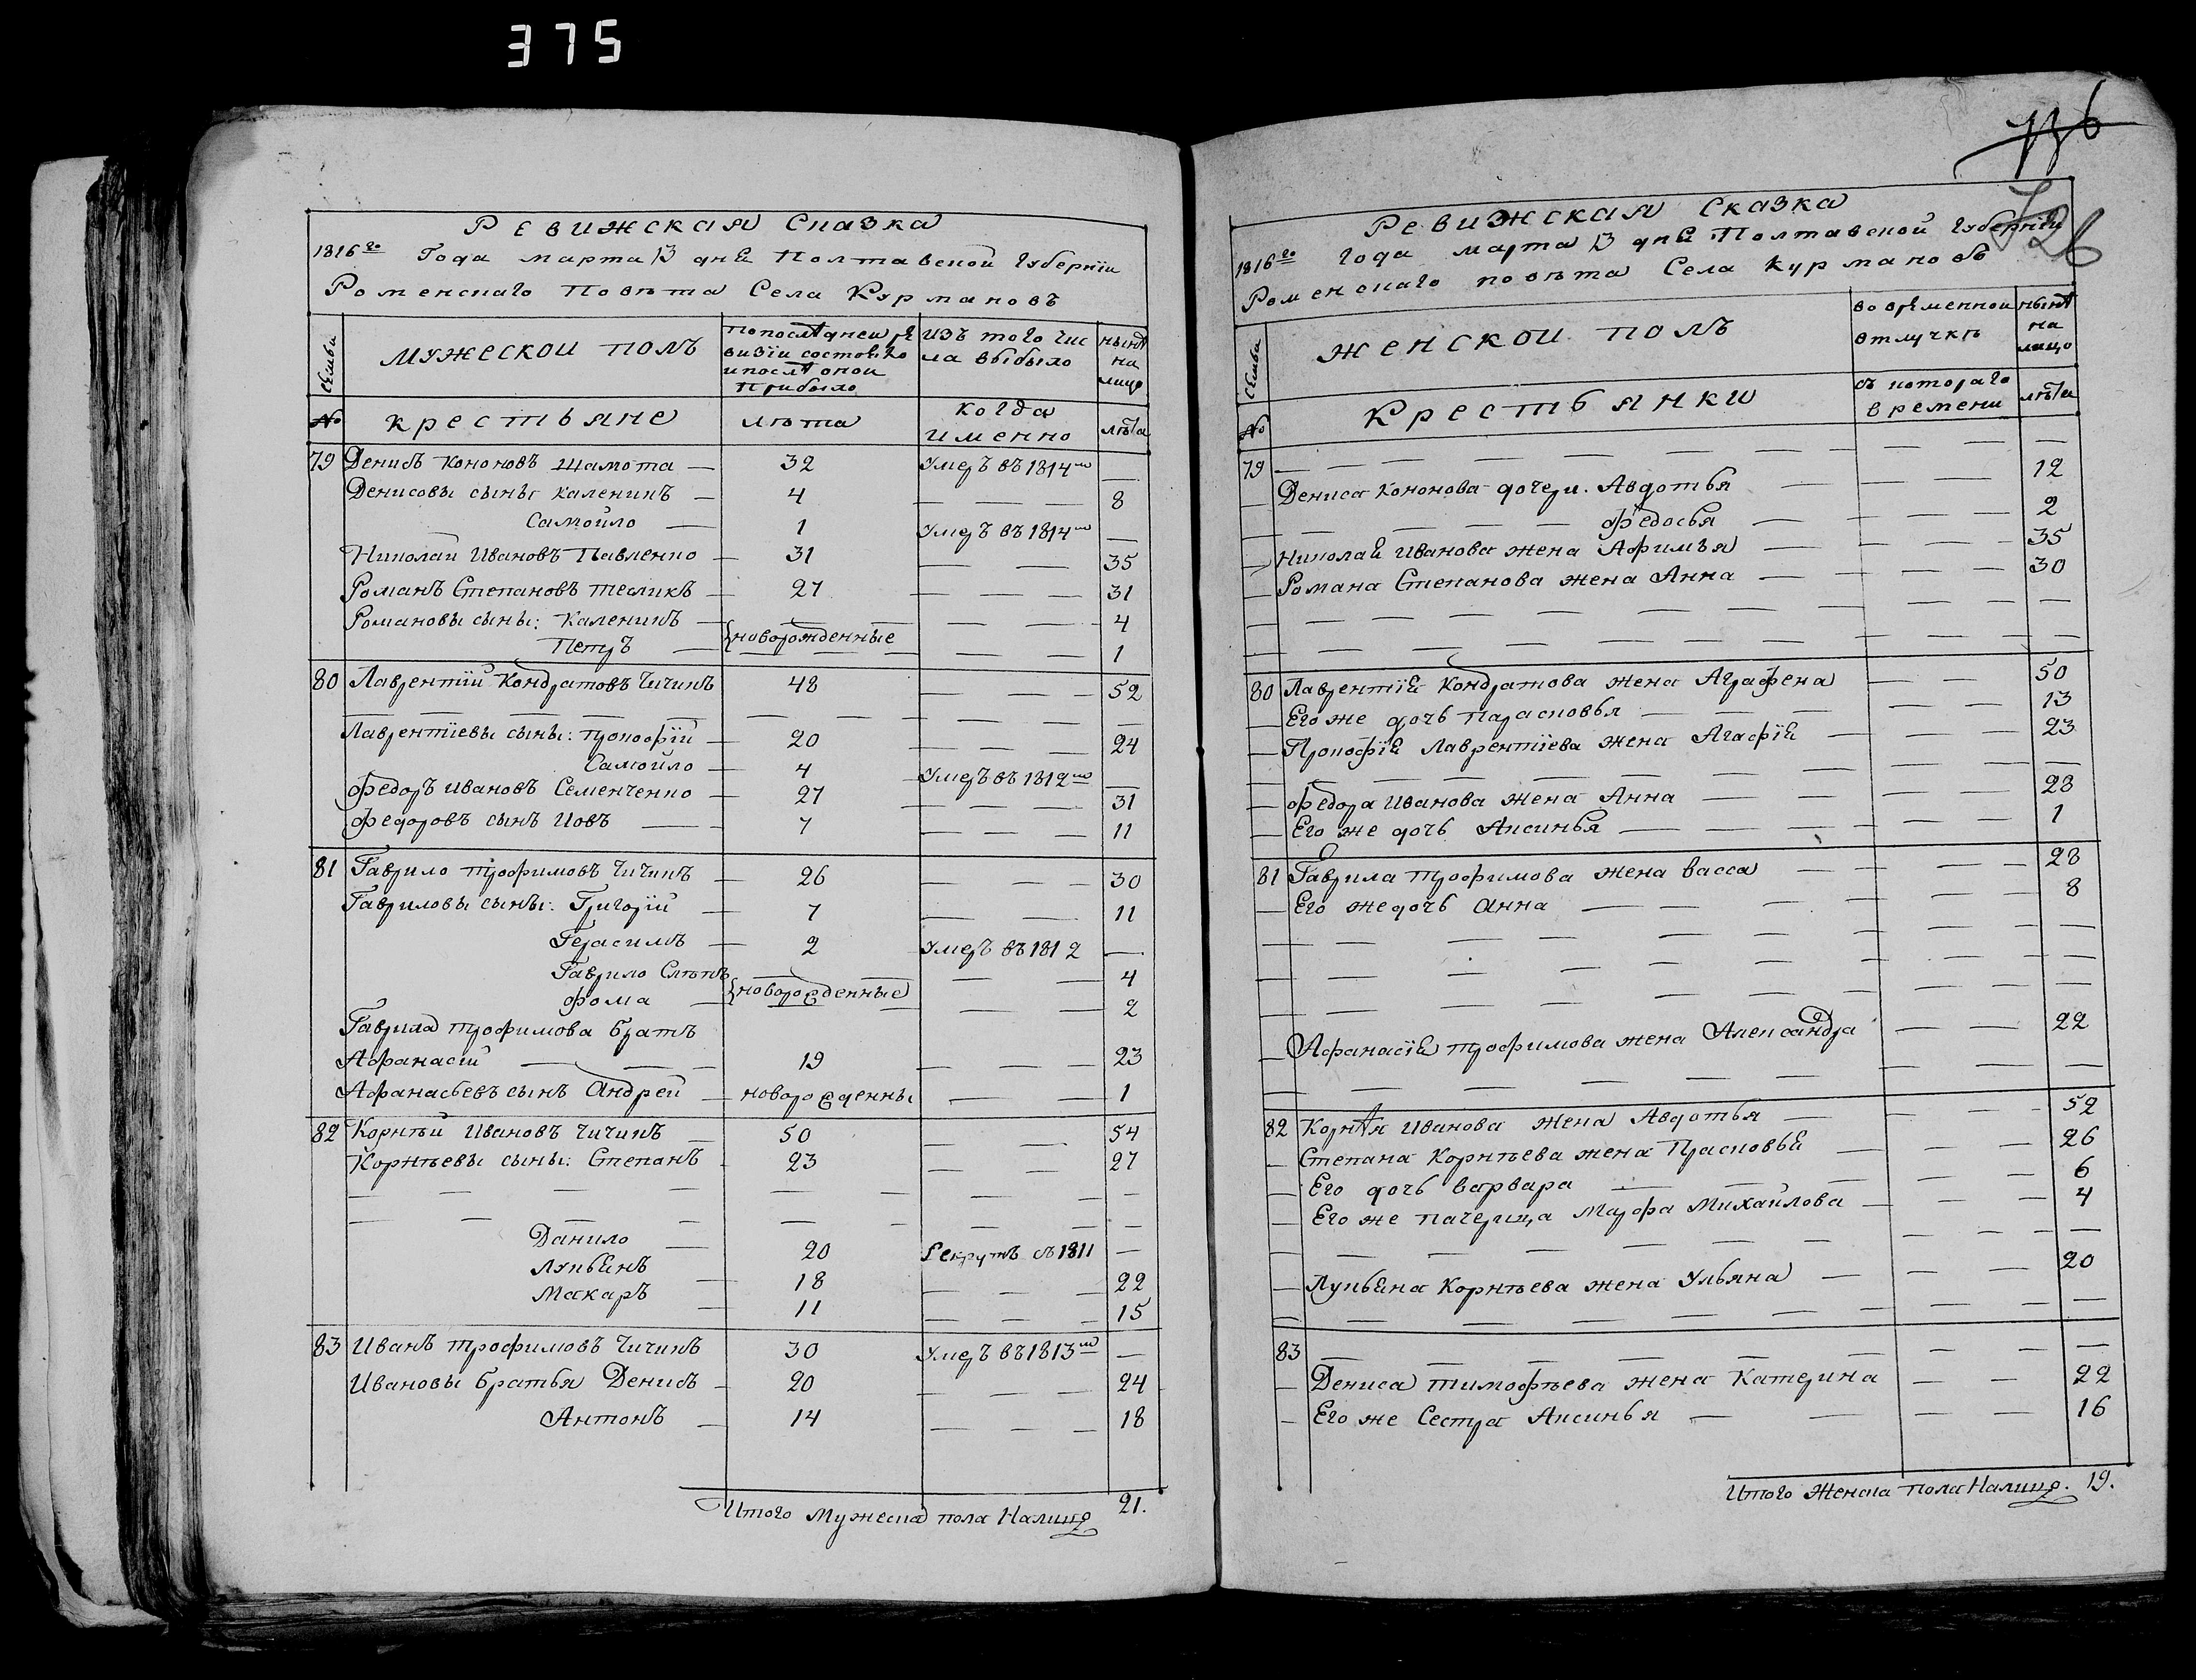 375
Ревижская Сказка
1816го Года марта 13 дня Полтавской Губернїи
Роменскаго Повѣта Села Курмановъ
Семьи
мужескои полъ
По последнеи ре
визїи состояло
и после оной
прибыло
Изъ того чис
ла выбыло
ныне
на
лицо
№
крестьяне
лѣта
когда
именно
лѣта
79 Денисъ Кононовъ Шамота — 32 Умеръ въ 1814мъ —
Денисовы сыны Каленикъ — 4 — — — 8
Самойло — 1 Умеръ въ 1814мъ —
Николай Ивановъ Павленко — 31 — — 35
Романъ Степановъ Тесликъ — 27 — — — 31
Романовы сыны: Каленикъ — — — — 4
{новорожденные
Петръ — — — 1
80 Лаврентїй Кондратовъ Чичикъ 48 — — — 52
Лаврентїевы сыны: Прокофїй — 20 — — — 24
Самойло — 4 Умеръ въ 1812мъ —
Федоръ Ивановъ Семенченко — 27 — — — 31
Федоровъ сынъ Иовъ — 7 — — — 11
81 Гаврило Трофимовъ Чичикъ — 26 — — — 30
Гавриловы сыны: Григорїй — 7 — — — 11
Герасимъ — 2 Умеръ въ 1812 —
Гаврило — — 4
{новорожденные
Фома — — — 2
Гаврила Трофимова братъ
Афанасій — — — 19 — — — 23
Афанасьевъ сынъ Андрей — новорожденны — — 1
82 Корнѣй Ивановъ Чичикъ — 50 — — 54
Корнѣевы сыны: Степанъ — 23 — — 27
Данило — 20 Рекрутъ съ 1811 —
Лукьянъ — 18 — — — 22
Макаръ — 11 — — — 15
83 Иванъ Трофимовъ Чичикъ 30 Умеръ въ 1813мъ —
Ивановы братья Денисъ — 20 — — — 24
Антонъ — 14 — — — 18
Итого Мужеска пола Налицо 21.
726
Ревижская Сказка
1816го Года марта 13 дня Полтавской Губернїи
Роменскаго повѣта Села Курмановъ
Семьи
женской полъ
во временной
отлучкѣ
ныне
на
лицо
№
Крестьянки
съ котораго
времени
лѣта
79 — — — —
Дениса Кононова дочери. Авдотья — — — 12
Федосья — — — 2
Николая Иванова жена Афимья — — — 35
Романа Степанова жена Анна — — — 30
80 Лаврентїя Кондратова жена Аграфена — — 50
Его же дочь Парасковья — — — 13
Прокофїя Лаврентїева жена Агафїя — — — 23
Федора Иванова жена Анна — — — 28
Его же дочь Аксинья — — — 1
81 Гаврила Трофимова жена Васса — — — 28
Его же дочь Анна — — — 8
Афанасїя Трофимова жена Александра — — 22
82 Корнея Иванова жена Авдотья — — — 52
Степана Корнѣева жена Прасковья — — — 26
Его дочь Варвара — — — 6
Его же пачерица Марфа Михайлова — — — 4
Лукьяна Корнѣева жена Ульяна — — — 20
83 — — — —
Дениса Тимофѣева жена Катерина — — 22
Его же Сестра Аксинья — — — 16
Итого Женска пола Налицо. 19.